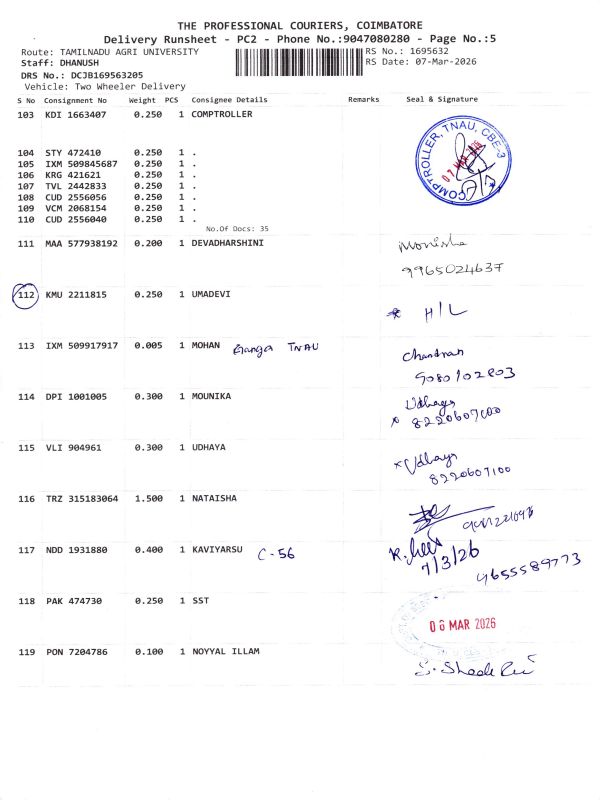 THE PROFESSIONAL COURIERS, COIMBATORE
Delivery Runsheet - PC2 - Phone No.:9047080280 - Page No.:5
Route: TAMILNADU AGRI UNIVERSITY RS No.: 1695632
Staff: DHANUSH RS Date: 07-Mar-2026
DRS No.: DCJB169563205
Vehicle: Two Wheeler Delivery
S No Consignment No Weight PCS Consignee Details Remarks Seal & Signature
103 KDI 1663407 0.250 1 COMPTROLLER
COMPTROLLER, TNAU, CBE-3
104 STY 472410 0.250 1 .
105 IXM 509845687 0.250 1 .
106 KRG 421621 0.250 1 .
107 TVL 2442833 0.250 1 .
108 CUD 2556056 0.250 1 .
109 VCM 2068154 0.250 1 .
110 CUD 2556040 0.250 1 .
No.Of Docs: 35
111 MAA 577938192 0.200 1 DEVADHARSHINI Monisha
9965024637
112 KMU 2211815 0.250 1 UMADEVI
* H/L
113 IXM 509917917 0.005 1 MOHAN Ganga TNAU Chandran
9080102803
114 DPI 1001005 0.300 1 MOUNIKA Udhaya
x 8220607100
115 VLI 904961 0.300 1 UDHAYA x Udhaya
8220607100
116 TRZ 315183064 1.500 1 NATAISHA
117 NDD 1931880 0.400 1 KAVIYARSU C-56
7/3/26
9655589773
118 PAK 474730 0.250 1 SST
06 MAR 2026
119 PON 7204786 0.100 1 NOYYAL ILLAM